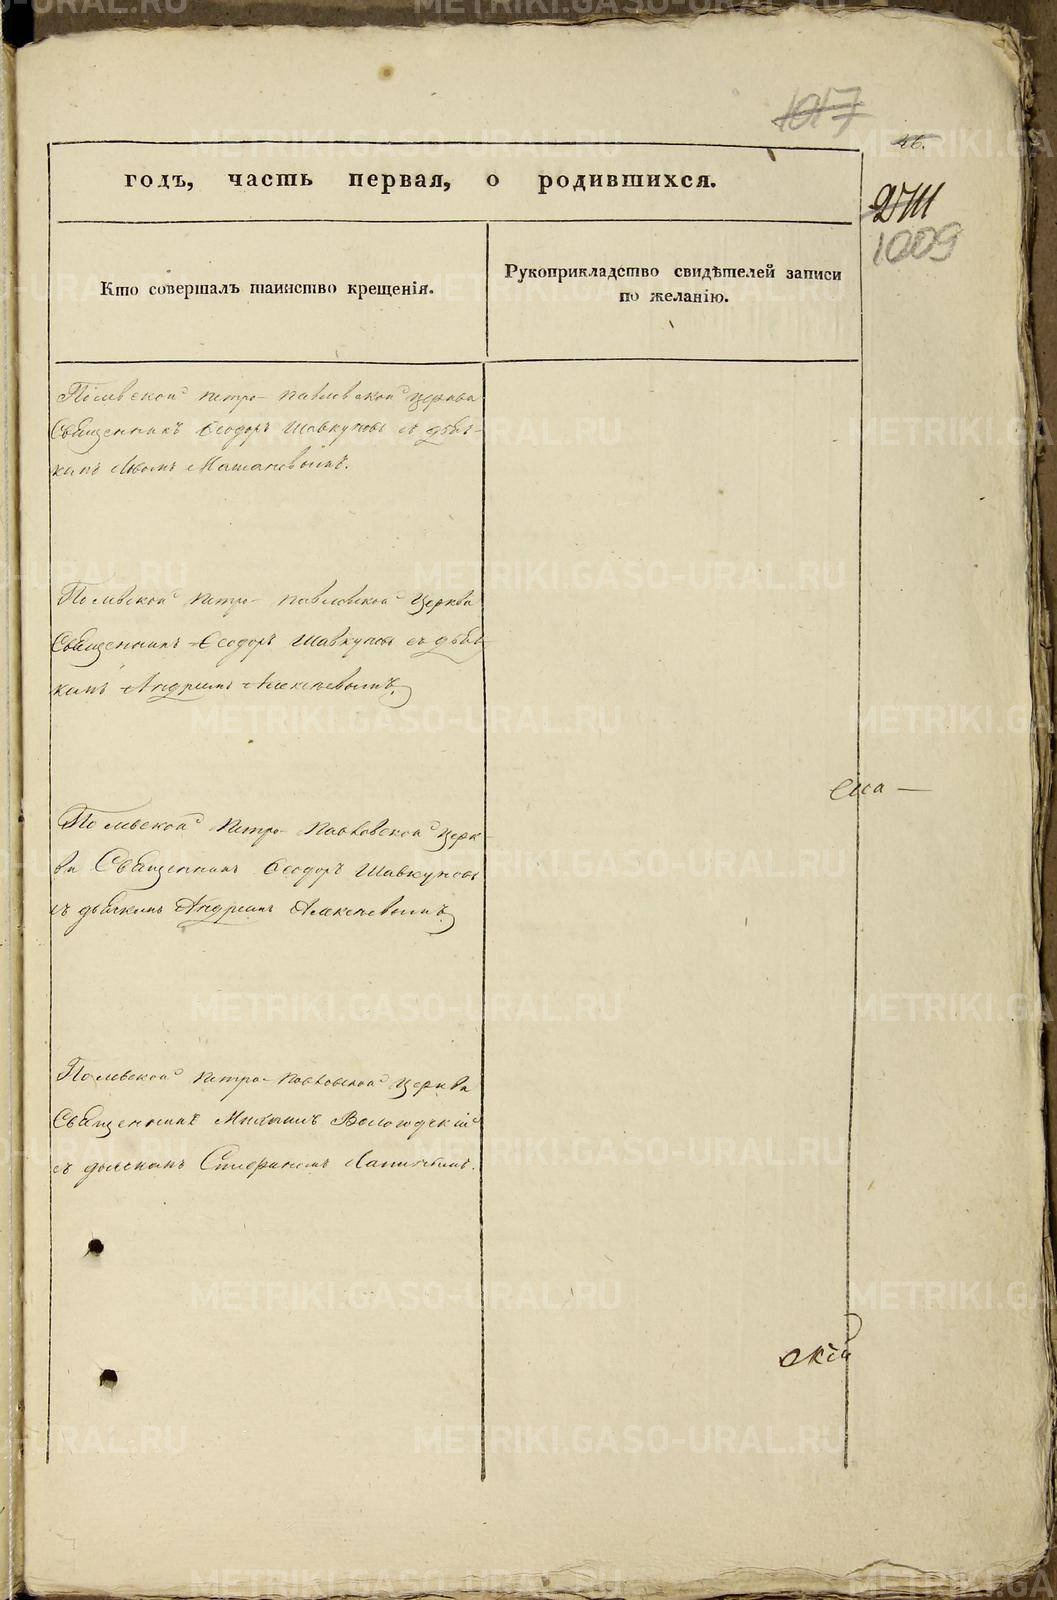 1017
46.
годъ, часть первая, о родившихся.
1009
Кто совершалъ таинство крещенія.
Рукоприкладство свидѣтелей записи
по желанію.
Полевской Петро-Павловской церкви
Священникъ Ѳеодоръ Шавкуновъ съ дьяч-
комъ
Полевской Петро-Павловской Церкви
Священникъ Ѳеодоръ Шавкуновъ съ дьяч-
комъ Андреемъ Алексѣевымъ.
еса —
Полевской Петро-Павловской Церк-
ви Священникъ Ѳеодоръ Шавкуновъ
съ дьячкомъ Андреемъ Алексѣевымъ.
Полевской Петро-Павловской Церкви
Священникъ Михаилъ Вологодскій
съ
скій
METRIKI.GASO-URAL.RU